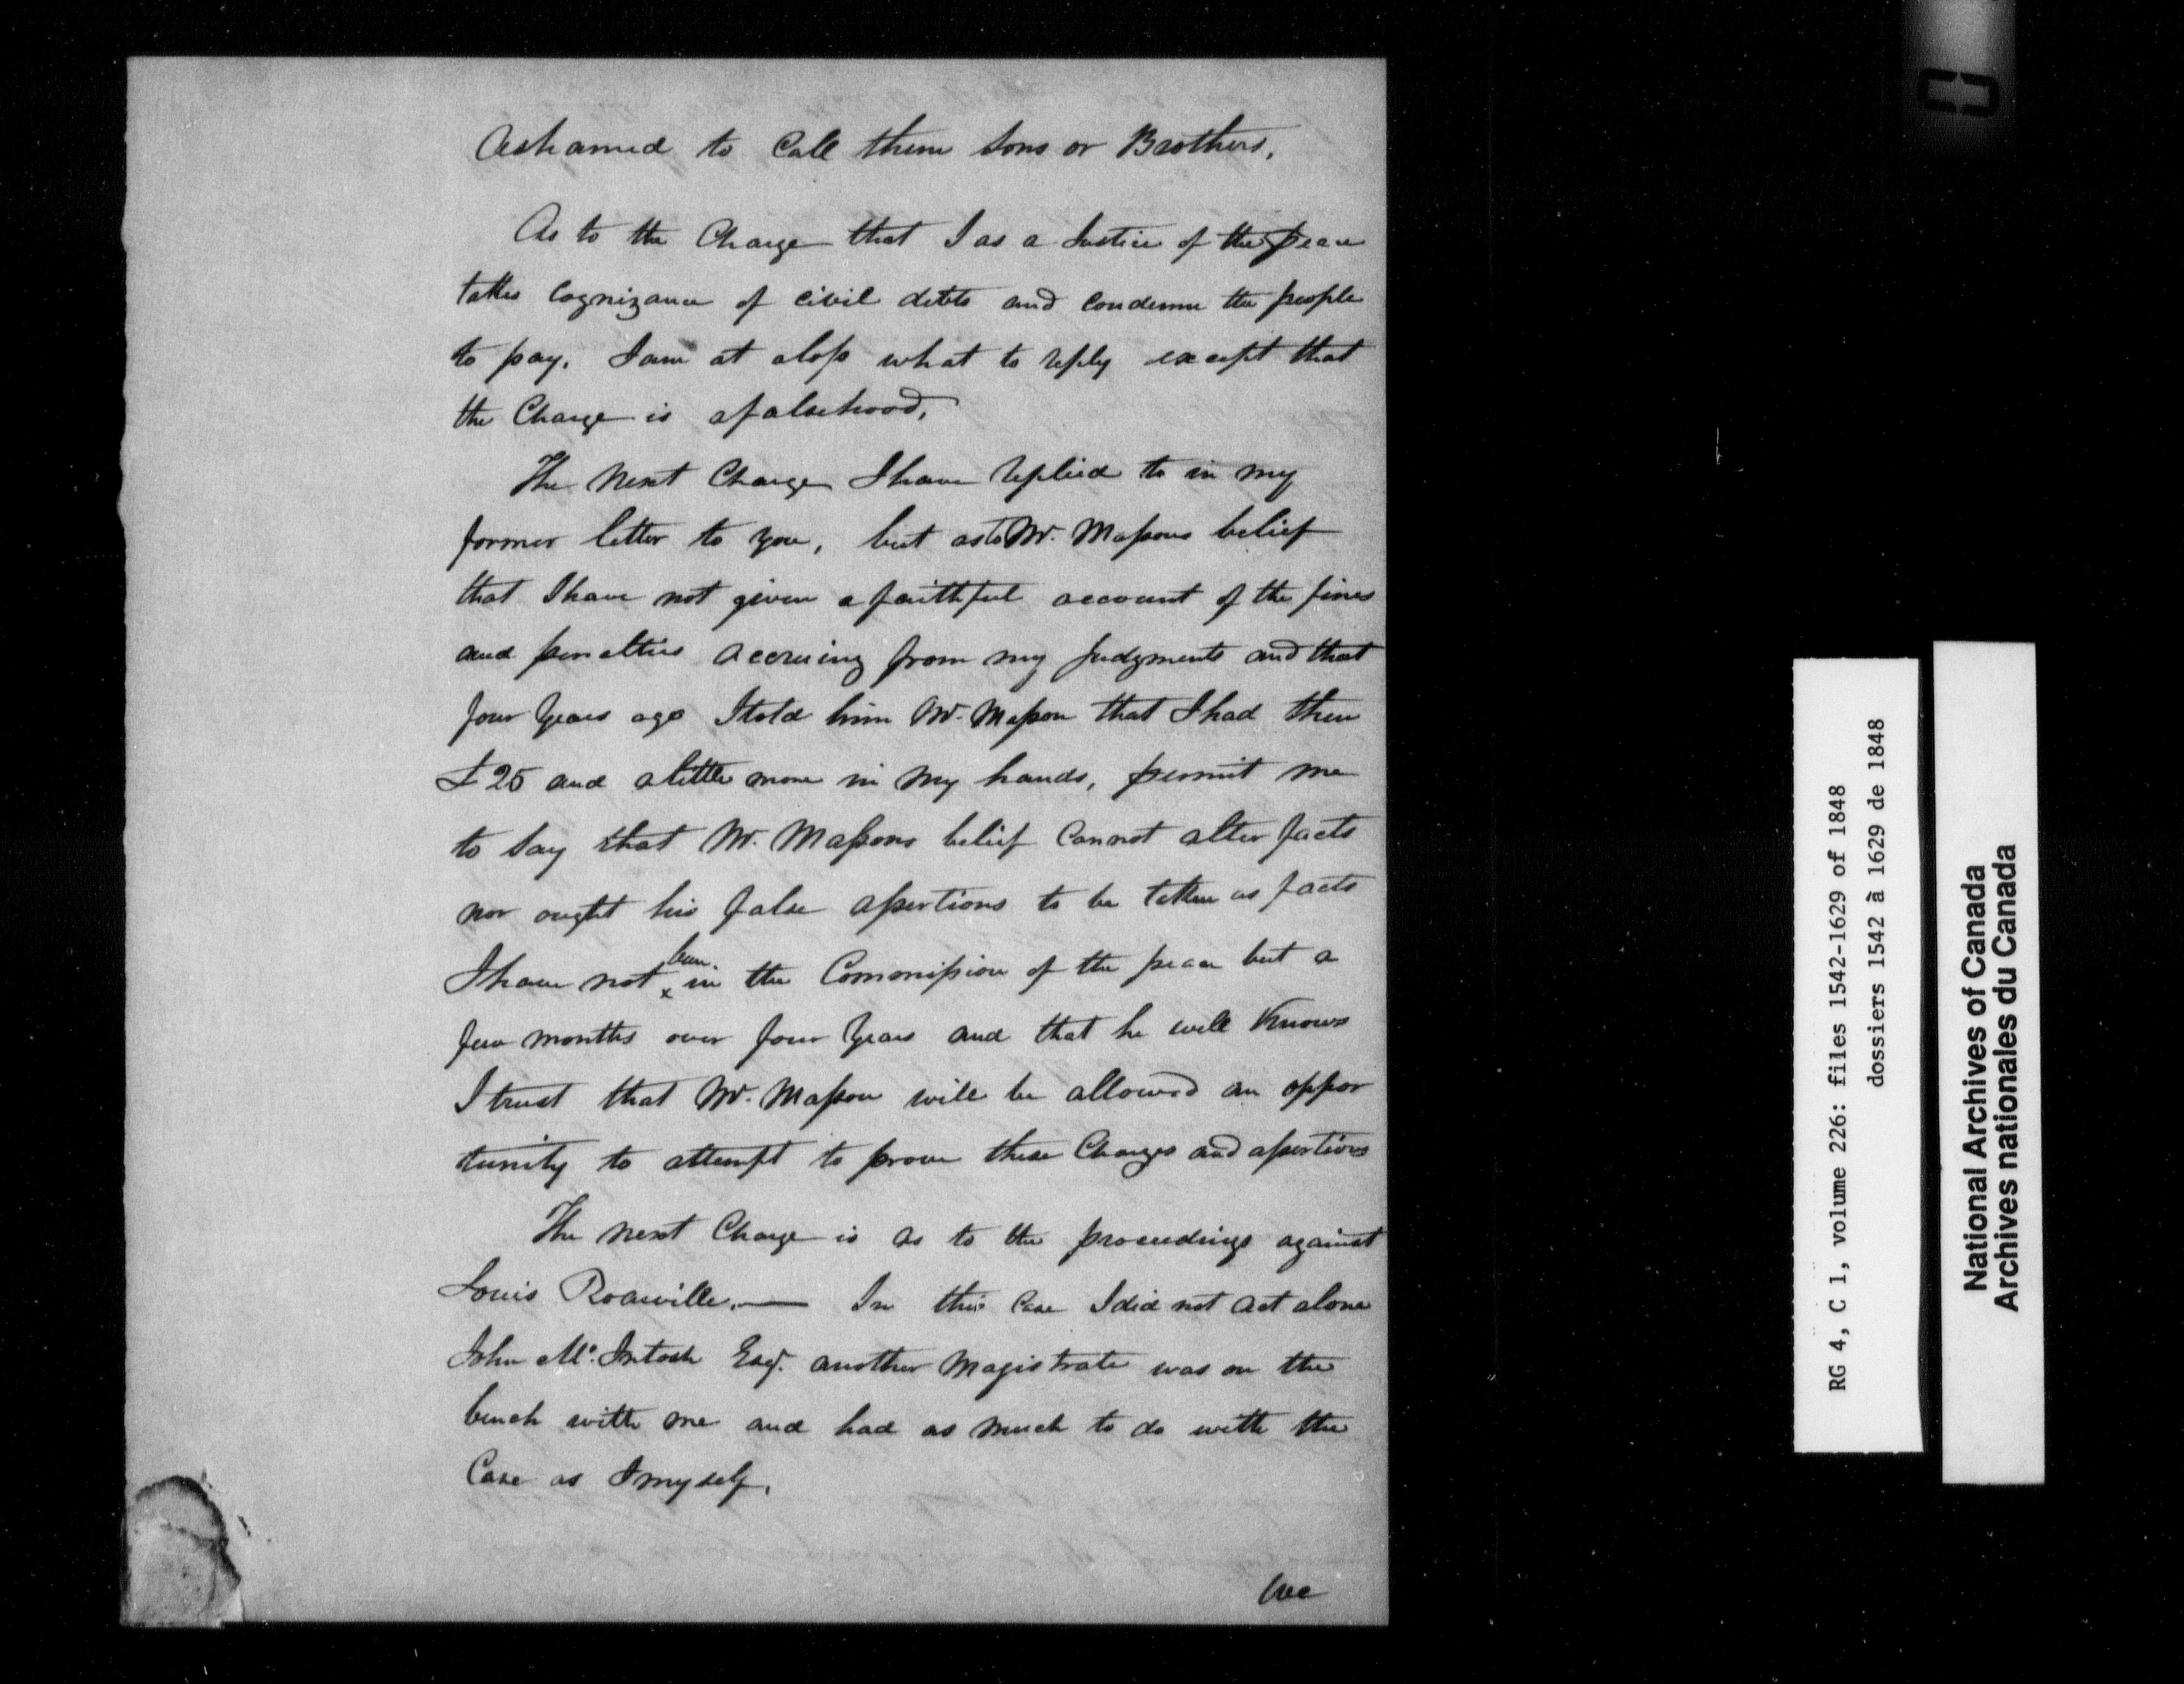 Ashamed to Call them Sons or Brothers.
As to the Charge that I as a Justice of the peace
takes Cognizance of civil debts and condemn the people
to pay. I am at a loss what to reply except that
the Charge is a falsehood.
The next Charge I have replied to in my
former letter to you, but as to Mr. Massons belief
that I have not given a faithful account of the fines
and penalties accruing from my judgments and that
four years ago I told him Mr. Masson that I had then
£25 and a little more in my hands, permit me
to say that Mr. Massons belief Cannot alter facts
nor ought his false assertions to be taken as facts
I have not been in the Commission of the peace but a
few months over four years and that he well Knows
I trust that Mr. Masson will be allowed an oppor
tunity to attempt to prove these Charges and assertions
The next Charge is as to the proceedings against
Louis . — In this Case I did not act alone
John Mc.Intosh Esq. another Magistrate was on the
bench with me and had as much to do with the
Case as I myself.
We
RG 4, C 1, volume 226: files 1542-1629 of 1848
dossiers 1542 à 1629 de 1848
National Archives of Canada
Archives nationales du Canada